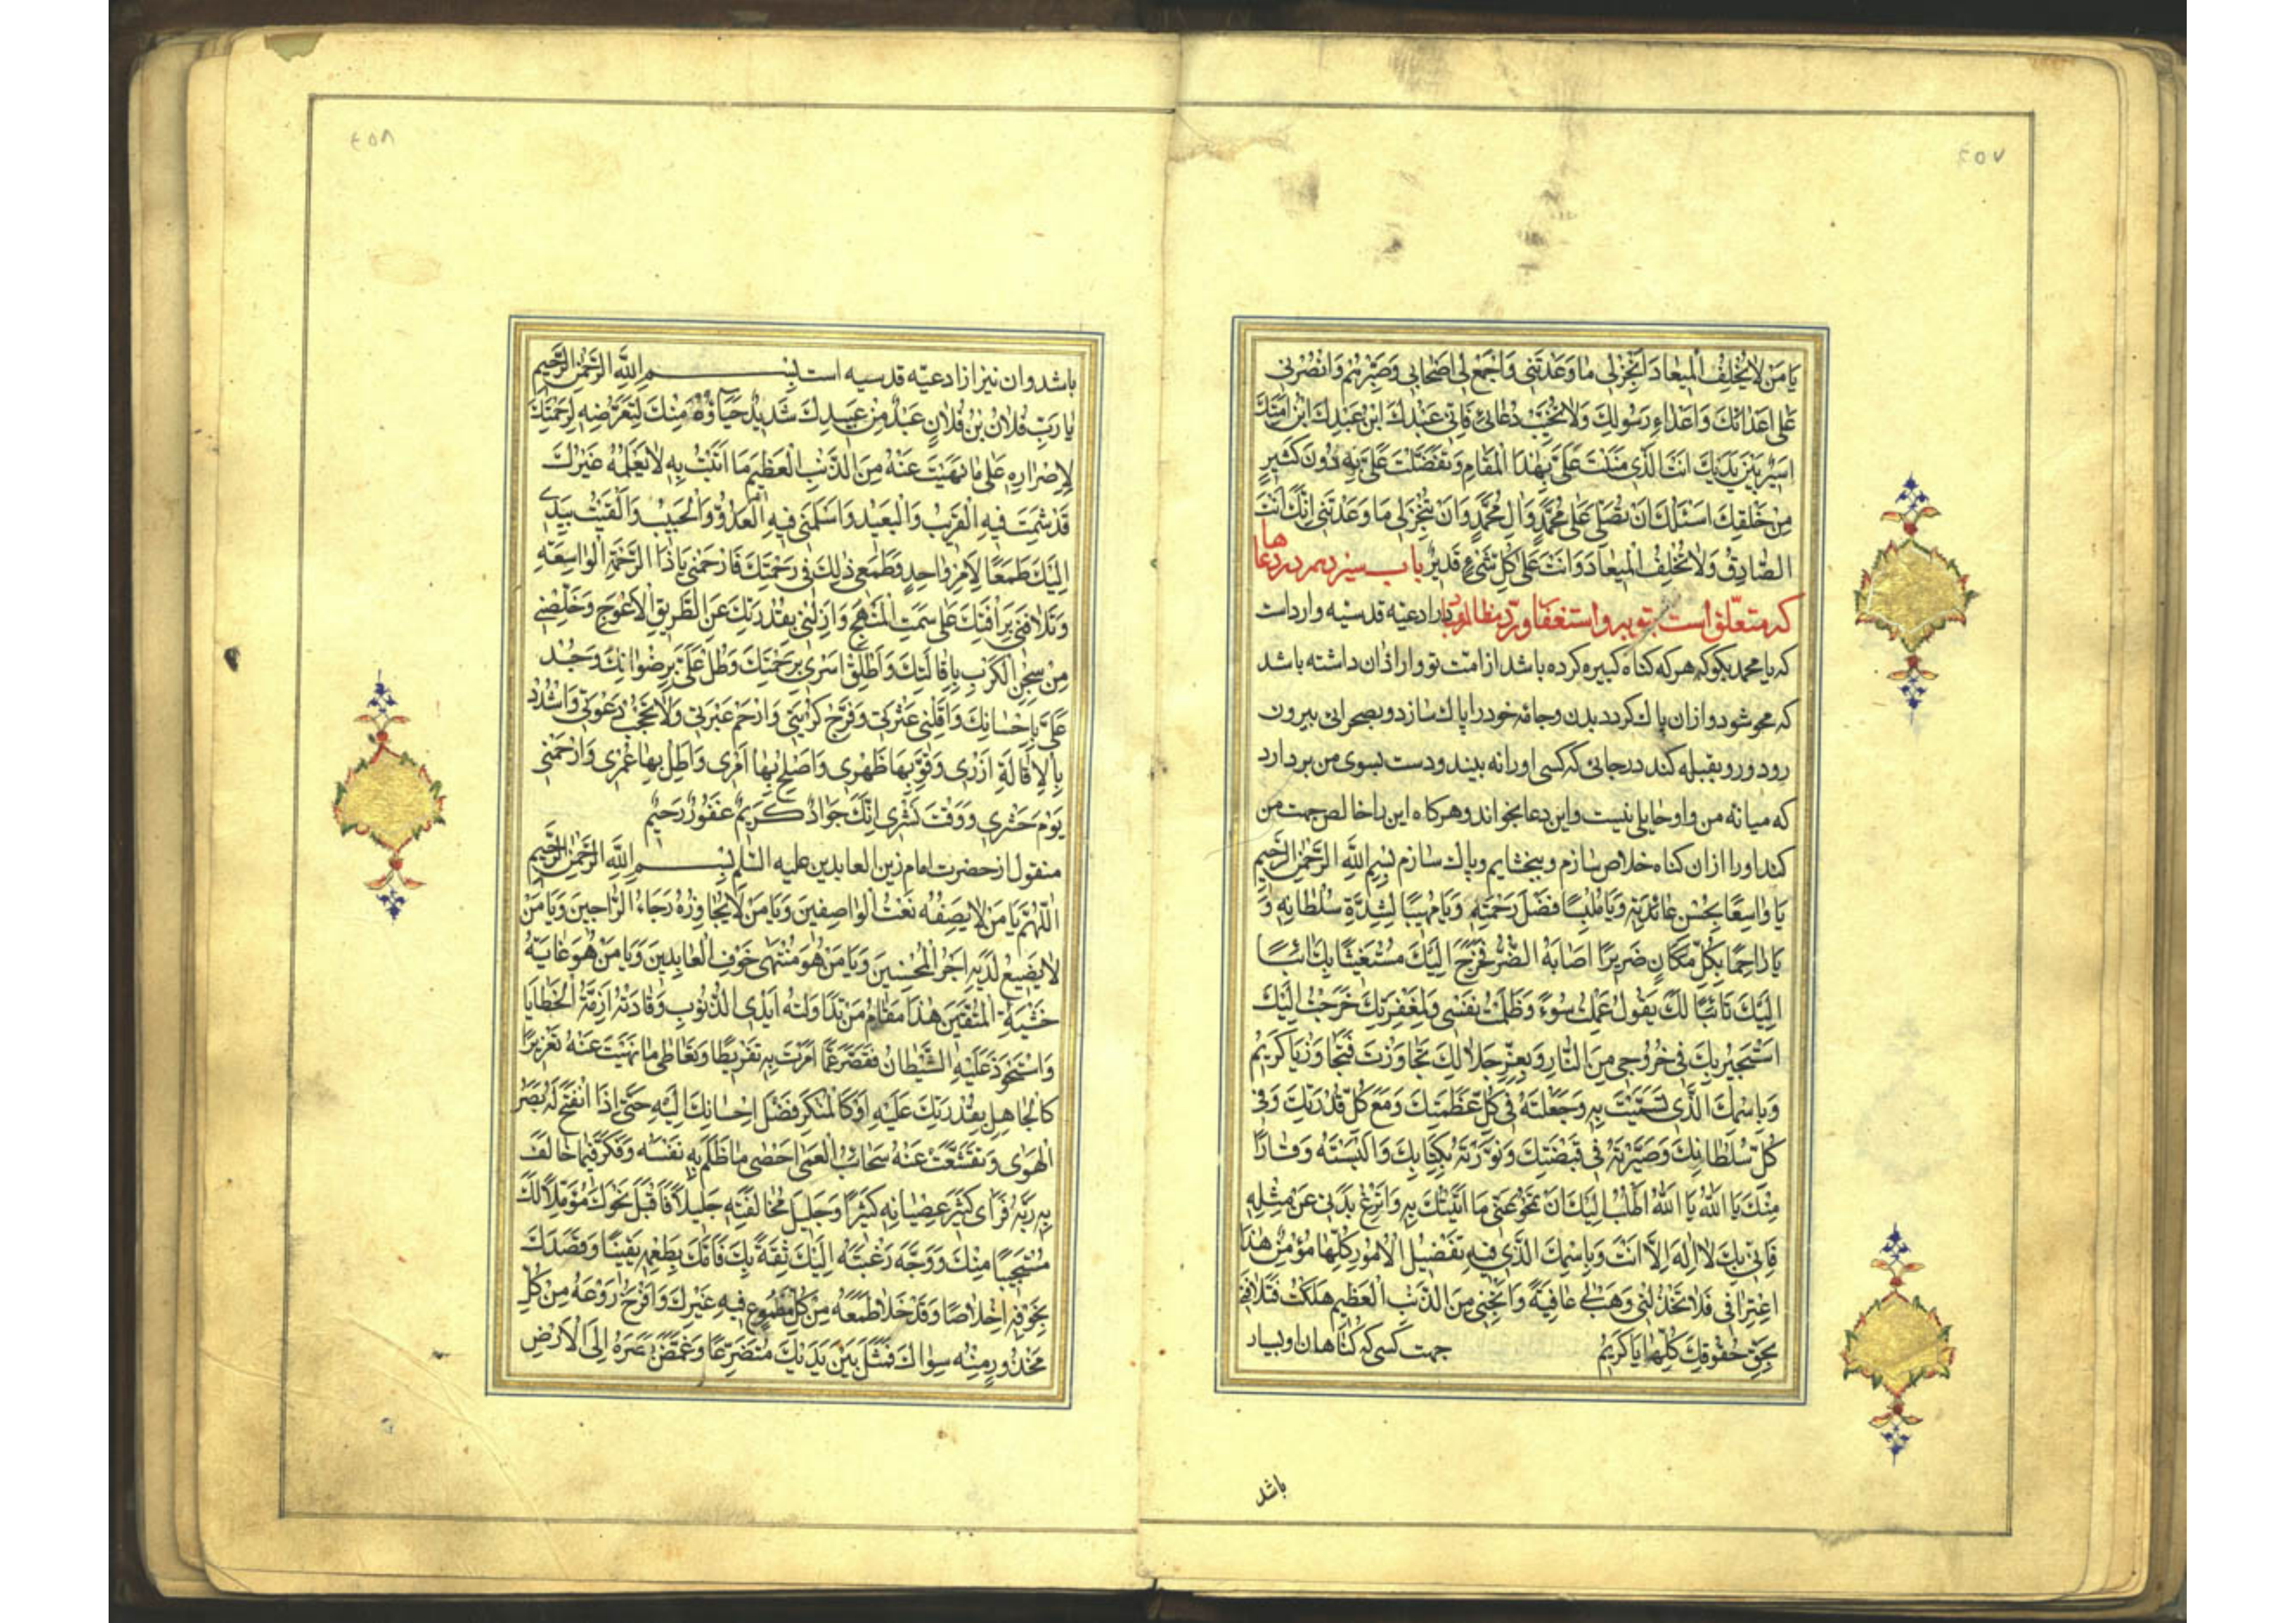 ٤٥٧
يَا مَنْ لَا يُخْلِفُ الْمِيعَادَ اَنْجِزْ لِي مَا وَعَدْتَنِي وَاجْمَعْ لِي اَصْحَابِي وَصَبِّرْهُمْ وَانْصُرْنِي
عَلَى اَعْدَائِكَ وَاَعْدَاءِ رَسُولِكَ وَلَا تُخَيِّبْ دُعَائِي فَاِنِّي عَبْدُكَ ابْنُ عَبْدِكَ ابْنُ اَمَتِكَ
اَسِيرٌ بَيْنَ يَدَيْكَ اَنْتَ الَّذِي مَنَنْتَ عَلَيَّ بِهٰذَا الْمَقَامِ وَتَفَضَّلْتَ عَلَيَّ بِهِ دُونَ كَثِيرٍ
مِنْ خَلْقِكَ اَسْئَلُكَ اَنْ تُصَلِّيَ عَلَى مُحَمَّدٍ وَاٰلِ مُحَمَّدٍ وَاَنْ تُنْجِزَ لِي مَا وَعَدْتَنِي اِنَّكَ اَنْتَ
الصَّادِقُ وَلَا تُخْلِفُ الْمِيعَادَ وَاَنْتَ عَلَى كُلِّ شَيْءٍ قَدِيرٌ باب سیزدهم در دعاها
که متعلق است بتوبه و استغفار و رد مظالم در ادعیه قدسیه وارد است
که یا محمد بگو که هر که گناه کبیره کرده باشد از امت تو و اراده آن داشته باشد
که محو شود و از ان پاک گردد بدن و جامه خود را پاک سازد و بصحرائی بیرون
رود و رو بقبله کند در جائی که کسی او را نه بیند و دست بسوی من بردارد
که میانه من و او حایلی نیست و این دعا بخواند و هرکاه این را خالص جهت من
کند او را از ان کناه خلاص سازم و ببخشایم و پاک سازم بِسْمِ اللّٰهِ الرَّحْمٰنِ الرَّحِيمِ
يَا وَاسِعًا بِحُسْنِ عَائِدَتِهِ وَيَا مُلْبِسًا فَضْلَ رَحْمَتِهِ وَيَا مُهِيبًا لِشِدَّةِ سُلْطَانِهِ وَ
يَا رَاحِمًا بِكُلِّ مَكَانٍ ضَرِيرًا اَصَابَهُ الضُّرُّ فَخَرَجَ اِلَيْكَ مُسْتَغِيثًا بِكَ اٰئِبًا
اِلَيْكَ تَائِبًا لَكَ يَقُولُ عَمِلْتُ سُوءً وَظَلَمْتُ نَفْسِي وَلِمَغْفِرَتِكَ خَرَجْتُ اِلَيْكَ
اَسْتَجِيرُ بِكَ فِي خُرُوجِي مِنَ النَّارِ وَبِعِزِّ جَلَالِكَ تَجَاوَزْتَ فَتَجَاوَزْ يَا كَرِيمُ
وَبِاسْمِكَ الَّذِي تَسَمَّيْتَ بِهِ وَجَعَلْتَهُ فِي كُلِّ عَظَمَتِكَ وَمَعَ كُلِّ قُدْرَتِكَ وَفِي
كُلِّ سُلْطَانِكَ وَصَيَّرْتَهُ فِي قَبْضَتِكَ وَنَوَّرْتَهُ بِكِتَابِكَ وَاَلْبَسْتَهُ وَقَارًا
مِنْكَ يَا اَللّٰهُ يَا اَللّٰهُ اَطْلُبُ اِلَيْكَ اَنْ تَمْحُوَ عَنِّي مَا اَتَيْتُكَ بِهِ وَانْزَعْ بَدَنِي عَنْ مِثْلِهِ
فَاِنِّي بِكَ لَا اِلٰهَ اِلَّا اَنْتَ وَبِاسْمِكَ الَّذِي فِيهِ تَفْصِيلُ الْاُمُورِ كُلِّهَا مُؤْمِنٌ هٰذَا
اعْتِرَافِي فَلَا تَخْذُلْنِي وَهَبْ لِي عَافِيَةً وَاَنْجِنِي مِنَ الذَّنْبِ الْعَظِيمِ هَلَكْتُ فَتَلَافَنِي
بِحَقِّ حُقُوقِكَ كُلِّهَا يَا كَرِيمُ جهت کسی که گناهان او بسیار
باشد
٤٥٨
باشد و ان نیز از ادعیه قدسیه است بِسْمِ اللّٰهِ الرَّحْمٰنِ الرَّحِيمِ
يَا رَبِّ فُلَانُ بْنُ فُلَانٍ عَبْدٌ مِنْ عَبِيدِكَ شَدِيدٌ حَيَاؤُهُ مِنْكَ لِتَعَرُّضِهِ لِرَحْمَتِكَ
لِاِصْرَارِهِ عَلَى مَا نَهَيْتَ عَنْهُ مِنَ الذَّنْبِ الْعَظِيمِ مَا اَتَيْتُ بِهِ لَا يَعْلَمُهُ غَيْرُكَ
قَدْ شَمِتَ فِيهِ الْقَرِيبُ وَالْبَعِيدُ وَاَسْلَمَنِي فِيهِ الْعَدُوُّ وَالْحَبِيبُ وَاَلْقَيْتُ بِيَدِي
اِلَيْكَ طَمَعًا لِاَمْرٍ وَاحِدٍ وَطَمَعِي ذٰلِكَ فِي رَحْمَتِكَ فَارْحَمْنِي يَا ذَا الرَّحْمَةِ الْوَاسِعَةِ
وَتَلَافَنِي بِرَأْفَتِكَ عَلَى سَمْتِ الْمَنْهَجِ وَاَزِلْنِي بِقُدْرَتِكَ عَنِ الطَّرِيقِ الْاَعْوَجِ وَخَلِّصْنِي
مِنْ سِجْنِ الْكَرْبِ بِاِقَالَتِكَ وَاَطْلِقْ اَسْرِي بِرَحْمَتِكَ وَطُلْ عَلَيَّ بِرِضْوَانِكَ وَجُدْ
عَلَيَّ بِاِحْسَانِكَ وَاَقِلْنِي عَثْرَتِي وَفَرِّجْ كُرْبَتِي وَارْحَمْ عَبْرَتِي وَلَا تَحْجُبْ دَعْوَتِي وَاشْدُدْ
بِالْاِقَالَةِ اَزْرِي وَقَوِّ بِهَا ظَهْرِي وَاَصْلِحْ بِهَا اَمْرِي وَاَطِلْ بِهَا عُمْرِي وَارْحَمْنِي
يَوْمَ حَشْرِي وَوَقْتَ نَشْرِي اِنَّكَ جَوَادٌ كَرِيمٌ غَفُورٌ رَحِيمٌ
منقول از حضرت امام زین العابدین علیه السلم بِسْمِ اللّٰهِ الرَّحْمٰنِ الرَّحِيمِ
اَللّٰهُمَّ يَا مَنْ لَا يَصِفُهُ نَعْتُ الْوَاصِفِينَ وَيَا مَنْ لَا يُجَاوِزُهُ رَجَاءُ الرَّاجِينَ وَيَا مَنْ
لَا يَضِيعُ لَدَيْهِ اَجْرُ الْمُحْسِنِينَ وَيَا مَنْ هُوَ مُنْتَهَى خَوْفِ الْعَابِدِينَ وَيَا مَنْ هُوَ غَايَةُ
خَشْيَةِ الْمُتَّقِينَ هٰذَا مَقَامُ مَنْ تَدَاوَلَتْهُ اَيْدِي الذُّنُوبِ وَقَادَتْهُ اَزِمَّةُ الْخَطَايَا
وَاسْتَحْوَذَ عَلَيْهِ الشَّيْطَانُ فَقَصَّرَ عَمَّا اَمَرْتَ بِهِ تَفْرِيطًا وَتَعَاطَى مَا نَهَيْتَ عَنْهُ تَغْرِيرًا
كَالْجَاهِلِ بِقُدْرَتِكَ عَلَيْهِ اَوْ كَالْمُنْكِرِ فَضْلَ اِحْسَانِكَ اِلَيْهِ حَتَّى اِذَا انْفَتَحَ لَهُ بَصَرُ
الْهُدَى وَتَقَشَّعَتْ عَنْهُ سَحَائِبُ الْعَمَى اَحْصَى مَا ظَلَمَ بِهِ نَفْسَهُ وَفَكَّرَ فِيمَا خَالَفَ
بِهِ رَبَّهُ فَرَاَى كَثِيرَ عِصْيَانِهِ كَثِيرًا وَجَلِيلَ مُخَالَفَتِهِ جَلِيلًا فَاَقْبَلَ نَحْوَكَ مُؤَمِّلًا لَكَ
مُسْتَحْيِيًا مِنْكَ وَوَجَّهَ رَغْبَتَهُ اِلَيْكَ ثِقَةً بِكَ فَاَمَّكَ بِطَمَعِهِ يَقِينًا وَقَصَدَكَ
بِخَوْفِهِ اِخْلَاصًا وَقَدْ خَلَا طَمَعُهُ مِنْ كُلِّ مَطْمُوعٍ فِيهِ غَيْرِكَ وَاَفْرَخَ رَوْعُهُ مِنْ كُلِّ
مَحْذُورٍ مِنْهُ سِوَاكَ فَمَثَلَ بَيْنَ يَدَيْكَ مُتَضَرِّعًا وَغَمَّضَ بَصَرَهُ اِلَى الْاَرْضِ